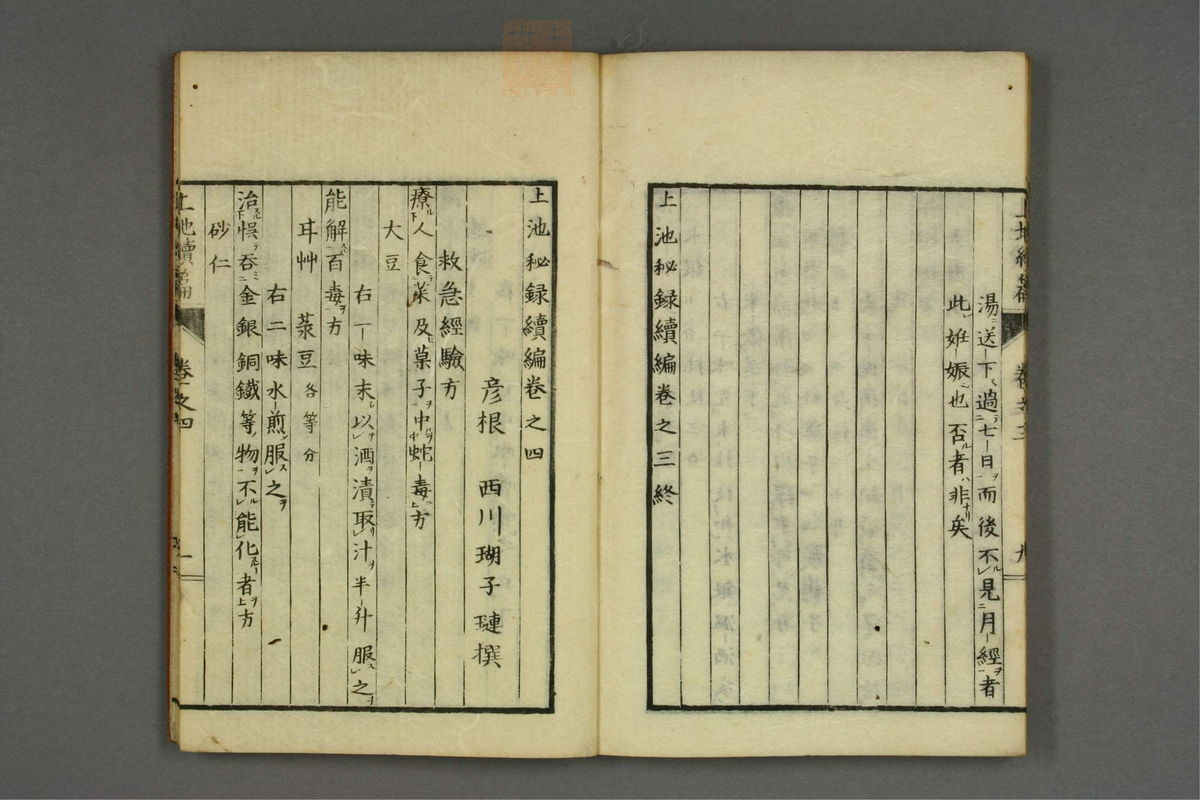 湯送下過七日而後不見月經者
此姙娠也否者非矣
上池秘録續編卷之三終
上池秘録續編卷之四
彦根 西川瑚子璉撰
救急經驗方
療人食菜及菓子中蛇毒方
大豆
右一味末以酒漬取汁半升服之
能解百毒方
耳艸 菉豆各等分
右二味水煎服之
治悞吞金銀銅鐵等物不能化者方
砂仁
上池續篇 卷之四 一